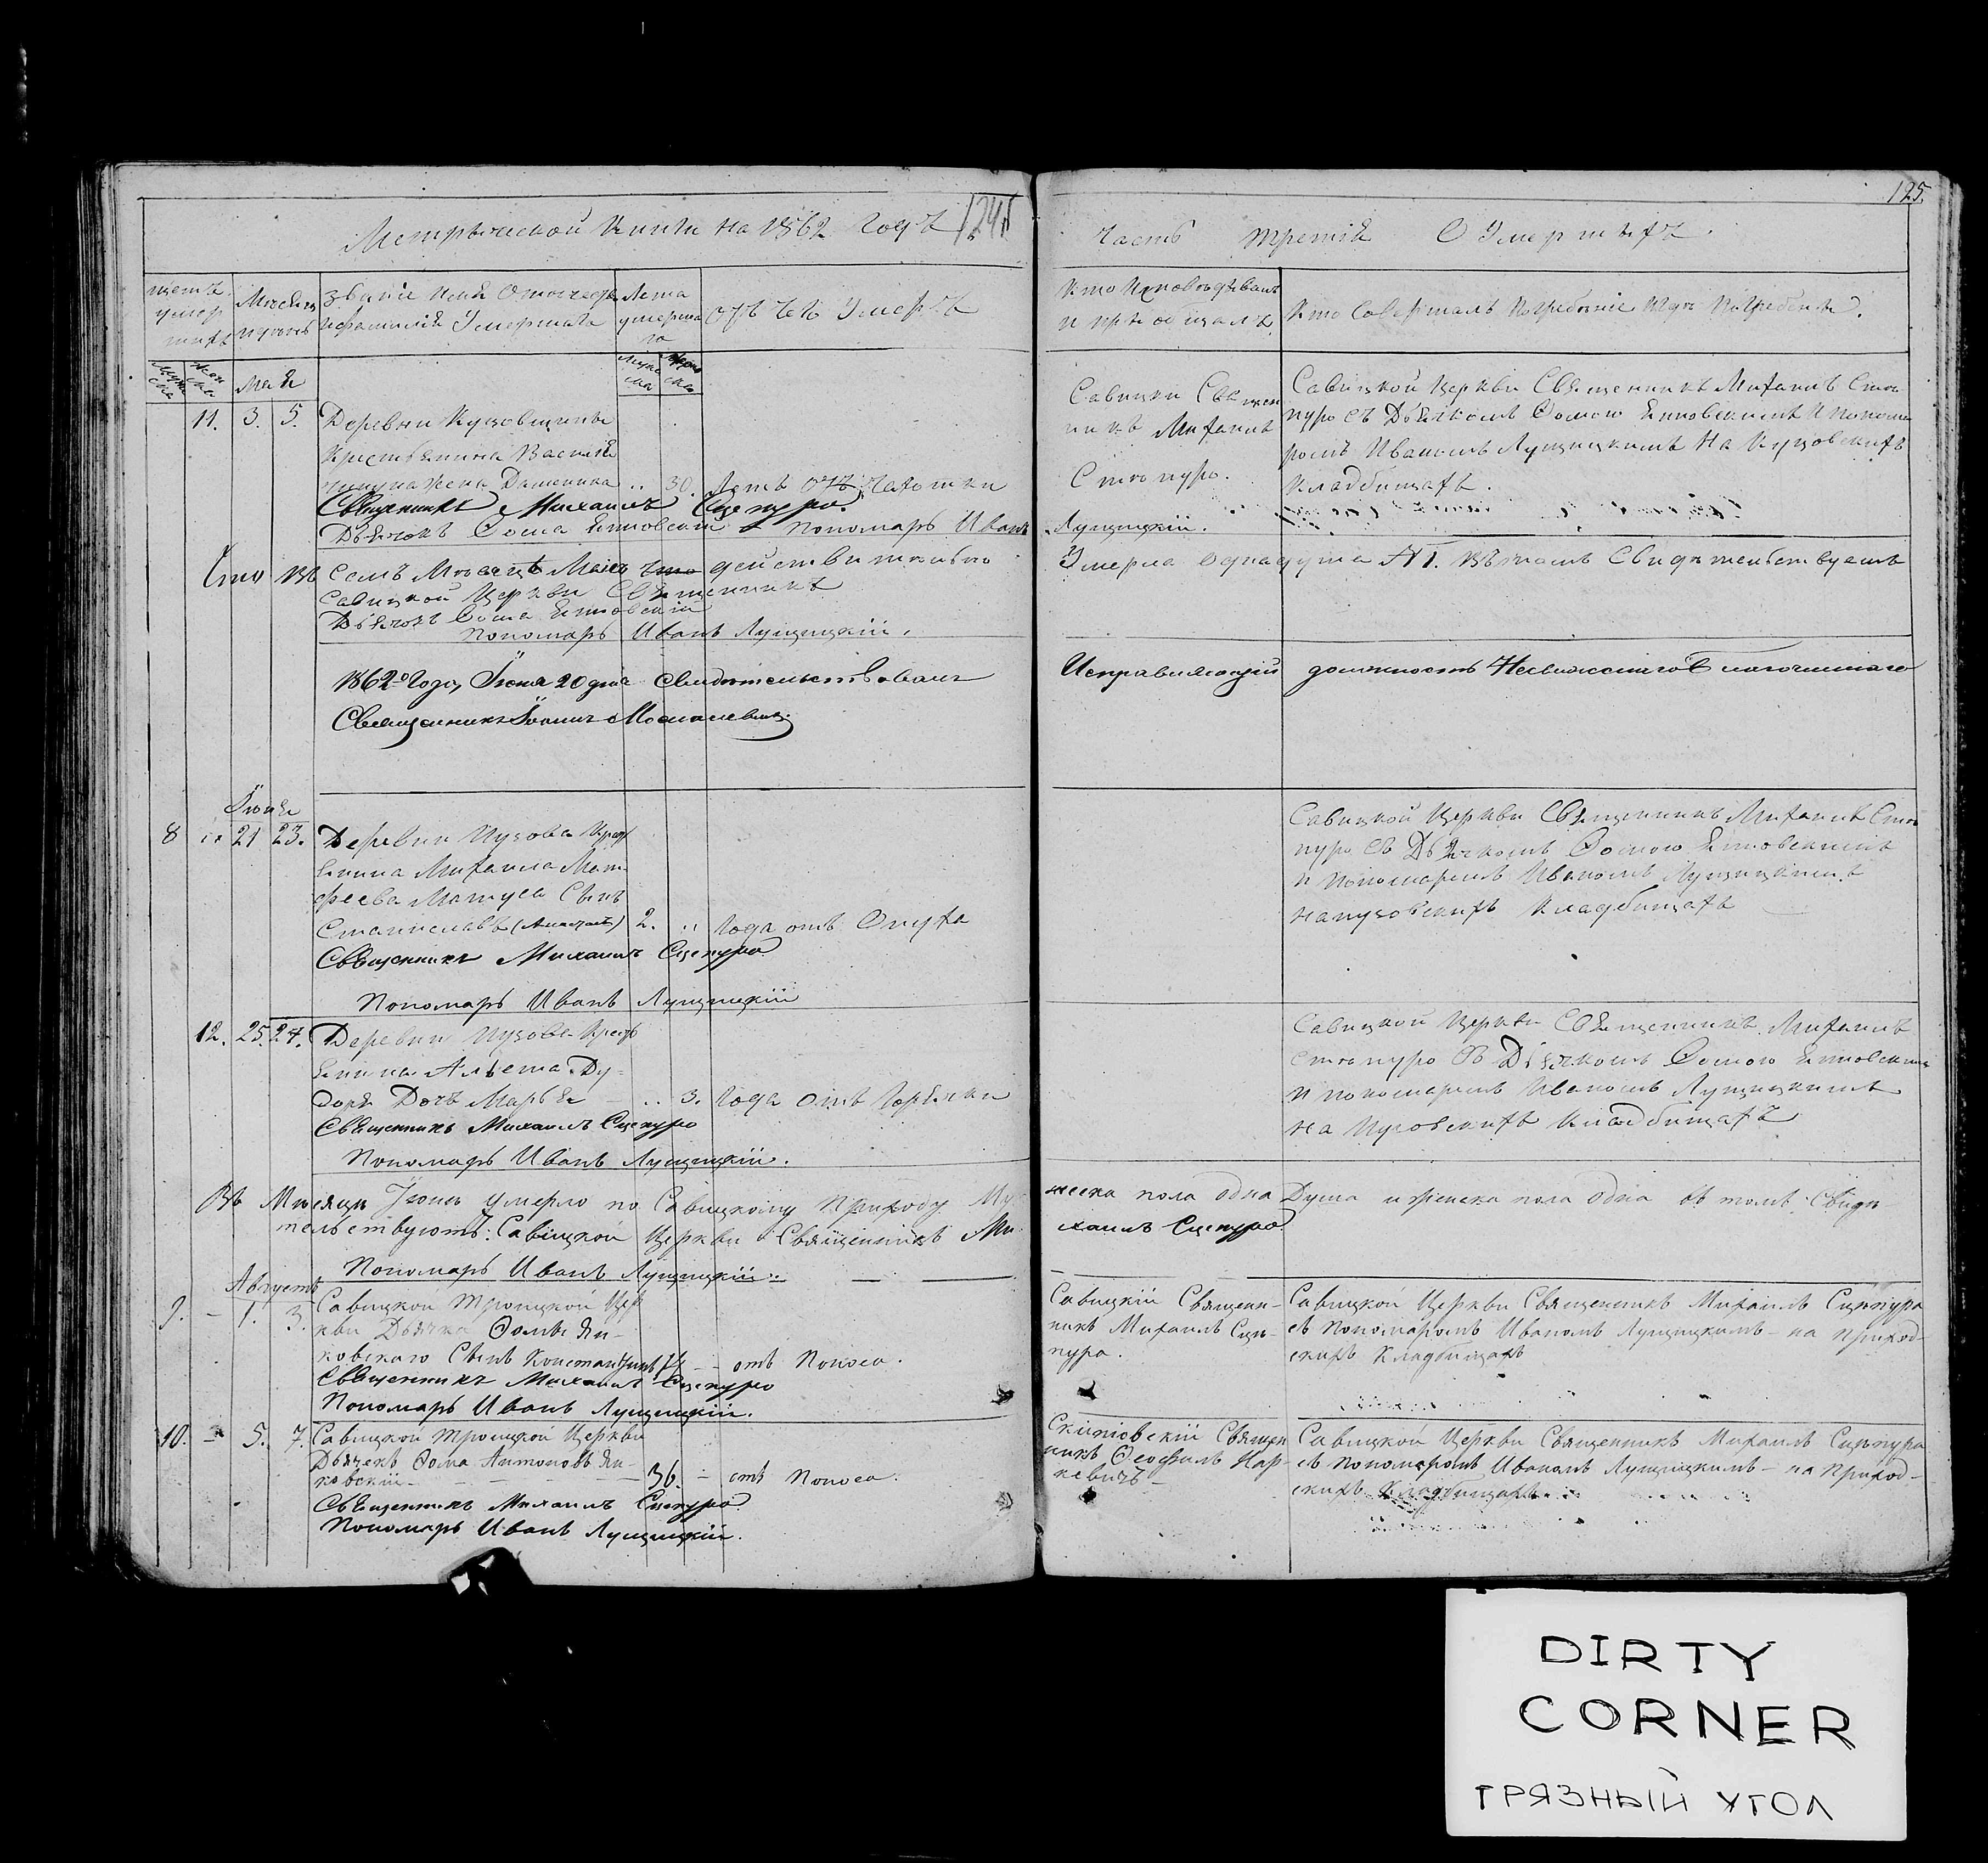 Метрической Книги на 1862 годъ 124
Часть третія О Умершихъ.
125.
щетъ умер шихъ
Мѣсяцъ и день
Званіе Имя Отечество
и фамилія Умершаго
Лета умерша го
Отъ чего Умеръ
Кто Исповѣдывалъ
и пріобщалъ.
Кто Совершалъ Погребеніе и гдѣ Погребены.
Муже ска
Жен ска
Мая
Муже ска
Женс ска
11. 3. 5. Деревни Куцовщины
Крестьянина Василія
жена .. 30. Летъ отъ Чахотки
Священникъ Михаилъ Сцепуро.
Дьячокъ Фома Янковскій Пономарь Иванъ
Лущицкій.
Савицкій Священ
никъ Михаилъ
Сцепуро.
Савицкой Церкви Священникъ Михаилъ Сце
пуро съ Дьячкомъ Фомою Янковскимъ и понома
ромъ Иваномъ Лущицкимъ На Куцовскихъ
Кладбищахъ.
Что въ Семъ Мѣсяцѣ Маіѣ что действительно
Умерла одна душа № 1. въ томъ Свидѣтельствуемъ
Савицкой Церкви Священникъ
Дьячокъ Фома Янковскій
Пономарь Иванъ Лущицкій.
1862го Года Іюня 20 дня Свидѣтельствовалъ
Исправляющій должность Несвижскаго Благочиннаго
Священникъ Іоаннъ
Іюня
8 .. 21 23. Деревни Пузова Крест
янина Михаила Мат
феева Матуса Сынъ
Станиславъ 2. .. Года отъ Опуха
Священникъ Михаилъ Сцепуро
Пономарь Иванъ Лущицкій
Савицкой Церкви Священникъ Михаилъ Сце
пуро съ Дьячкомъ Фомою Янковскимъ
и пономаремъ Иваномъ Лущицкимъ
на пузовскихъ Кладбищахъ
12. 25. 27. Деревни Пузова Крест
янина Ду-
доря Дочь Марья .. 3. Года отъ Горячки
Священникъ Михаилъ Сцепуро
Пономарь Иванъ Лущицкій.
Савицкой Церкви Священникъ Михаилъ
Сцепуро съ Дьячкомъ Фомою Янковским
и пономаремъ Иваномъ Лущицкимъ
на Пузовскихъ Кладбищахъ
Въ Мисяцъ Іюнь умерло по Савицкому Приходу Му
жеска пола одна Душа и женска пола одна въ томъ Свидѣ
тельствуютъ: Савицкой Церкви Священникъ Ми
хаилъ Сцепуро
Пономарь Иванъ Лущицкій.
Августъ
9. — 1. 3. Савицкой Троицкой Цер
кви Дьячка Фомы Ян-
ковскаго Сынъ Константинъ — отъ Поноса.
Священникъ Михаилъ Сцепуро
Пономарь Иванъ Лущицкій.
Савицкій Священ-
никъ Михаилъ Сце-
пура.
Савицкой Церкви Священникъ Михаилъ Сцепура
съ Пономаромъ Иваномъ Лущицкимъ — на приход-
скихъ Кладбищахъ
10. — 5. 7. Савицкой Троицкой Церкви
Дьячекъ Фома Антоновъ Ян-
ковскій — 36. — отъ Поноса.
Священникъ Михаилъ Сцепуро
Пономарь Иванъ Лущицкій.
Священ
никъ Феофилъ
кевичъ
Савицкой Церкви Священникъ Михаилъ Сцепура
съ Пономаромъ Иваномъ Лущицкимъ — на Приход-
скихъ Кладбищахъ
DIRTY
CORNER
ГРЯЗНЫЙ УГОЛ